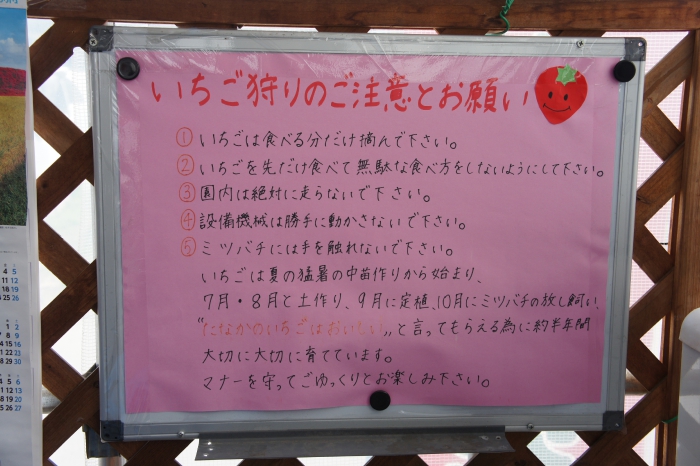 いちご狩りのご注意とお願い
① いちごは食べる分だけ摘んで下さい。
② いちごを先だけ食べて無駄な食べ方をしないようにして下さい。
③ 園内は絶対に走らないで下さい。
④ 設備機械は勝手に動かさないで下さい。
⑤ ミツバチには手を触れないで下さい。
いちごは夏の猛暑の中苗作りから始まり、
7月・8月と土作り、9月に定植、10月にミツバチの放し飼い、
"になかのいちごはおいしい„と言ってもらえる為に約半年間
大切に大切に育てています。
マナーを守ってごゆっくりとお楽しみ下さい。
4 5
11 12
18 19
25 26
1 2
8 9
15 16
22 23
29 30
5 6
12 13
19 20
26 27